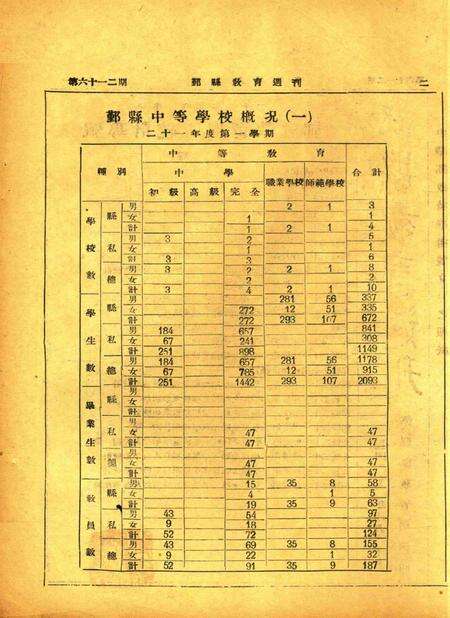 第六十一二期 鄞縣教育週刊 二
鄞縣中等學校概況(一)
二十一年度第一學期
種別 中等教育 合計
中學 職業學校 師範學校
初級 高級 完全
學校數 縣 男 2 1 3
女 1 1
計 1 2 1 4
私 男 3 2 5
女 1 1
計 3 3 6
總 男 3 2 2 1 8
女 2 2
計 3 4 2 1 10
學生數 縣 男 281 56 337
女 272 12 51 335
計 272 293 107 672
私 男 184 657 841
女 67 241 308
計 251 898 1149
總 男 184 657 281 56 1178
女 67 785 12 51 915
計 251 1442 293 107 2093
畢業生數 縣 男
女
計
私 男
女 47 47
計 47 47
總 男
女 47 47
計 47 47
教員數 縣 男 15 35 8 58
女 4 1 5
計 19 35 9 63
私 男 43 54 97
女 9 18 27
計 52 72 124
總 男 43 69 35 8 155
女 9 22 1 32
計 52 91 35 9 187